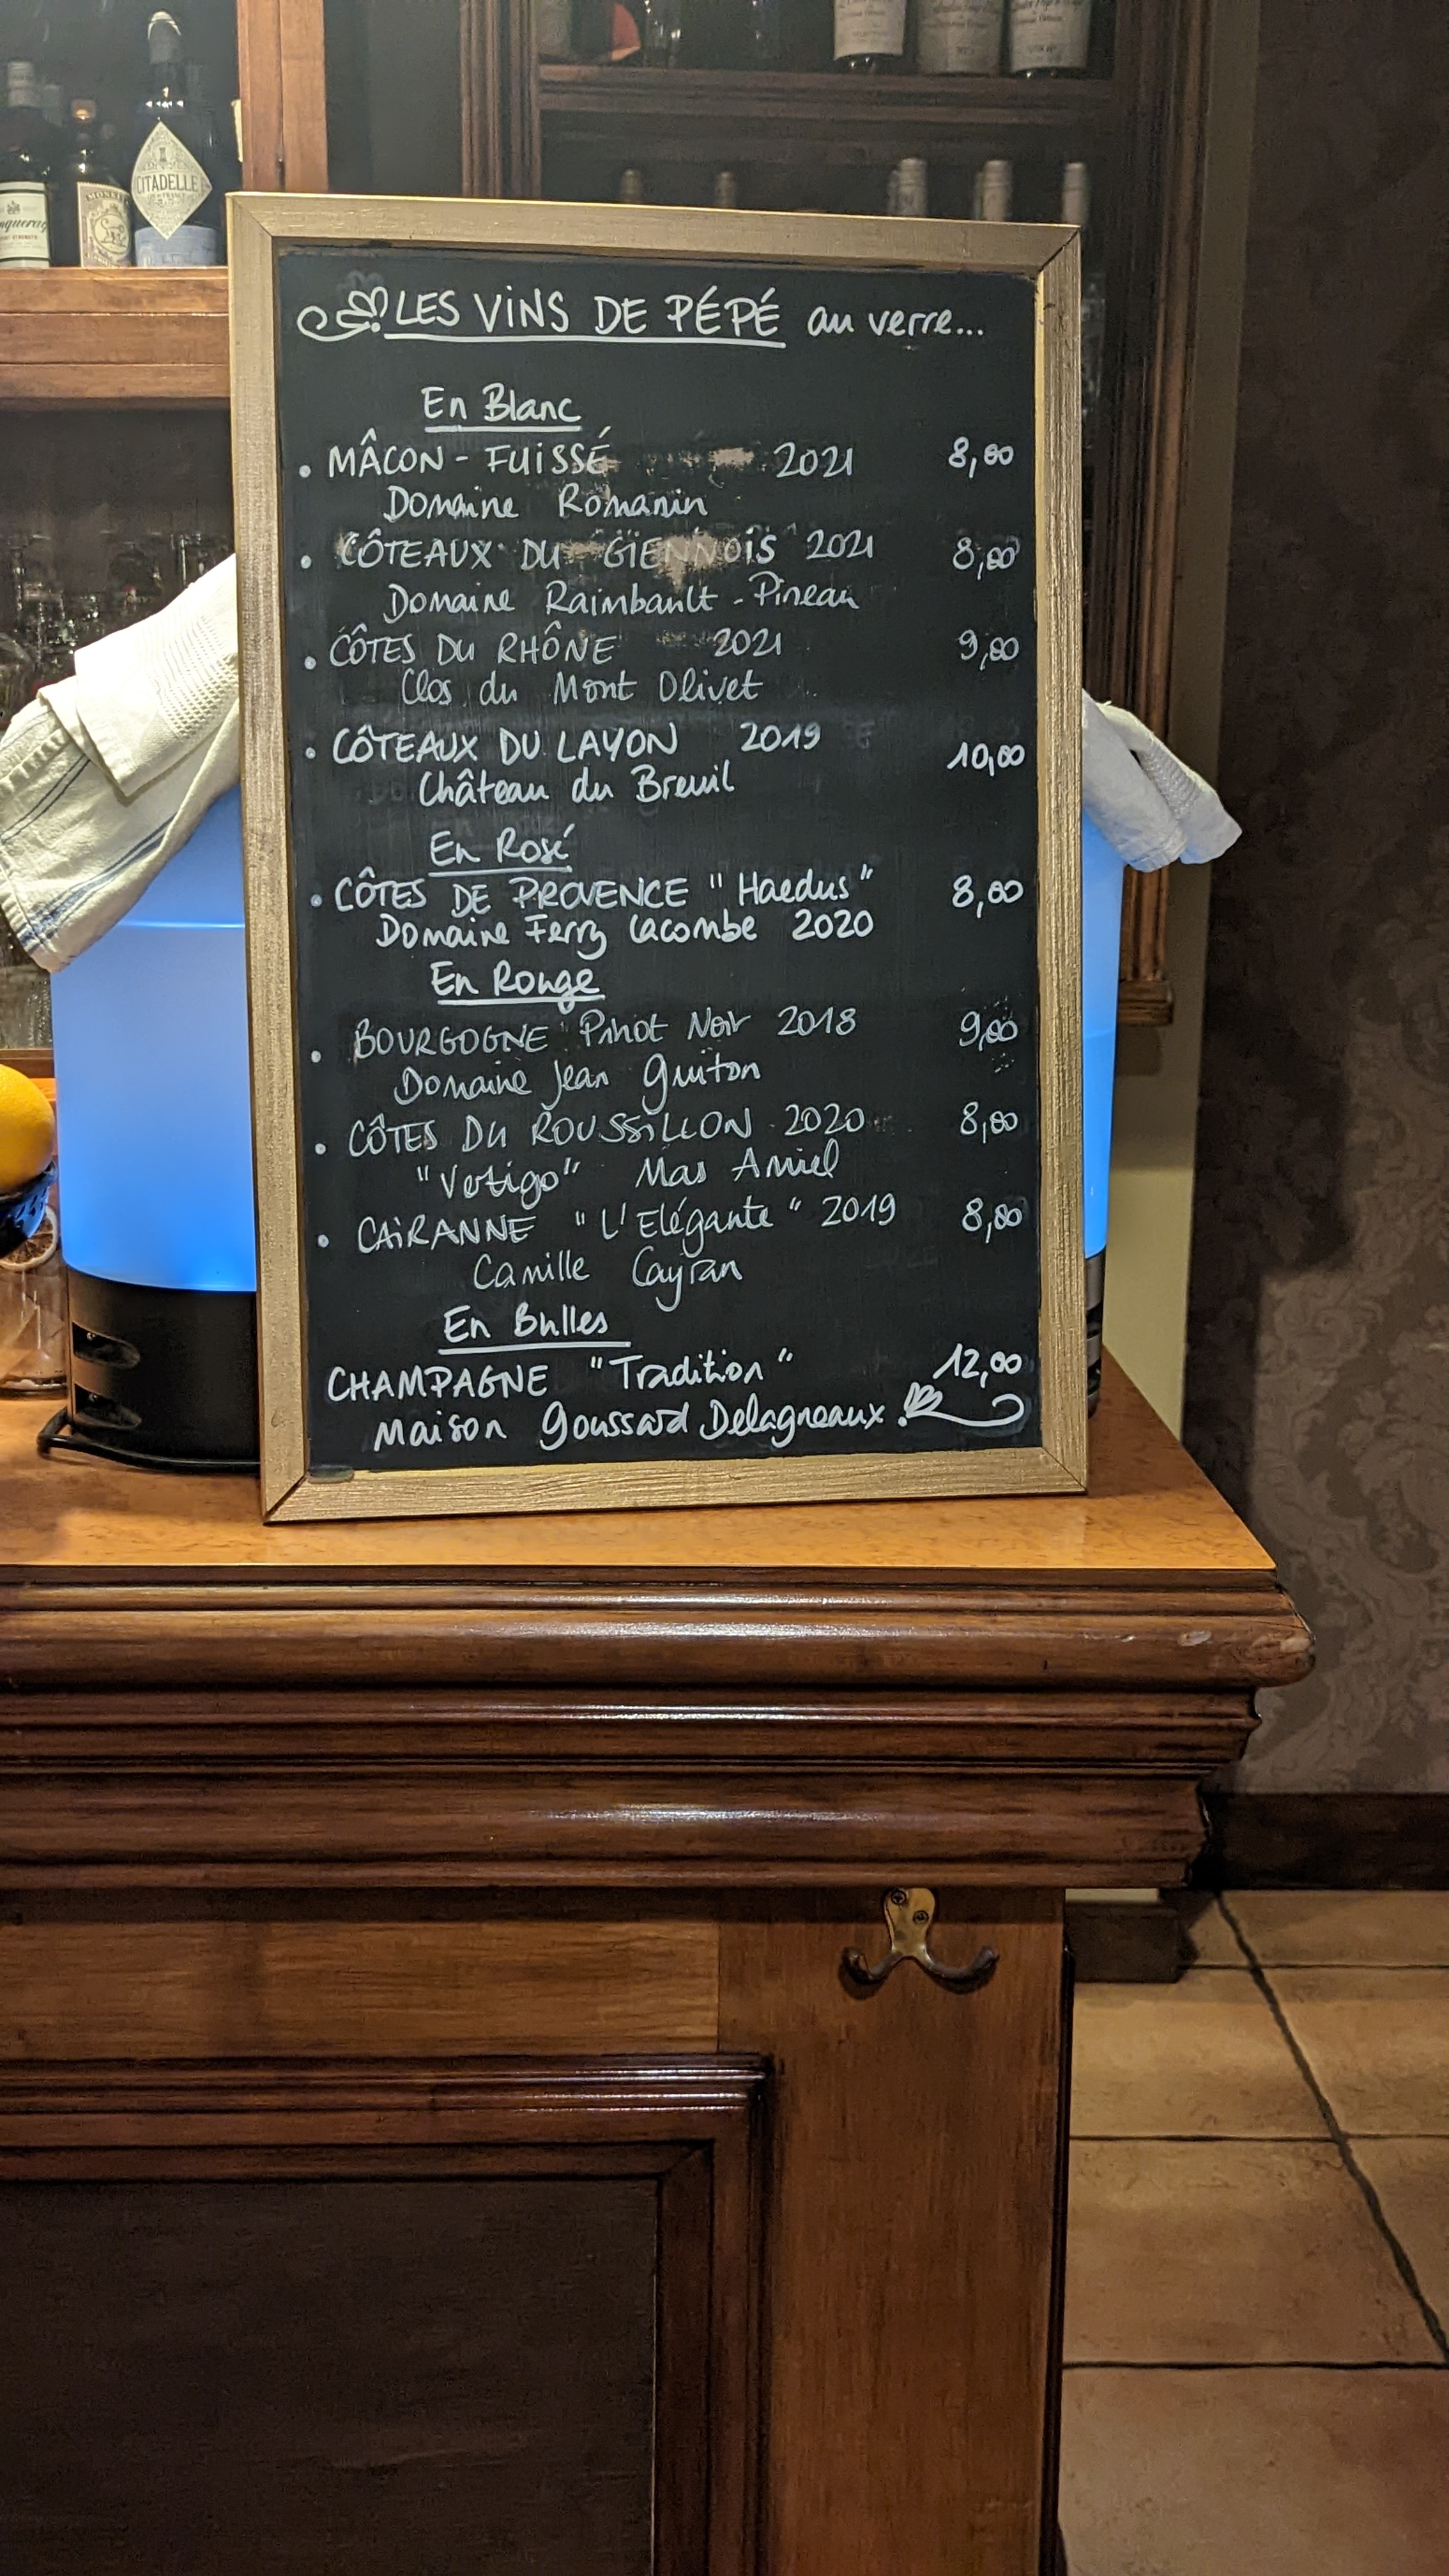 CITADELLE
MONKEY
LES VINS DE PÉPÉ au verre...
En Blanc
. MÂCON - FUISSÉ 2021 8,00
Domaine Romanin
. CÔTEAUX DU GIENNOIS 2021 8,00
Domaine Raimbault - Pineau
. CÔTES DU RHÔNE 2021 9,00
Clos du Mont Olivet
. CÔTEAUX DU LAYON 2019 10,00
Château du Breuil
En Rosé
. CÔTES DE PROVENCE "Haedus" 8,00
Domaine Ferry Lacombe 2020
En Rouge
. BOURGOGNE Pinot Noir 2018 9,00
Domaine Jean Guiton
. CÔTES DU ROUSSILLON 2020 8,00
"Vertigo" Mas Amiel
. CAIRANNE "L'Elégante" 2019 8,00
Camille Cayran
En Bulles
CHAMPAGNE "Tradition" 12,00
Maison Goussard Delagneaux